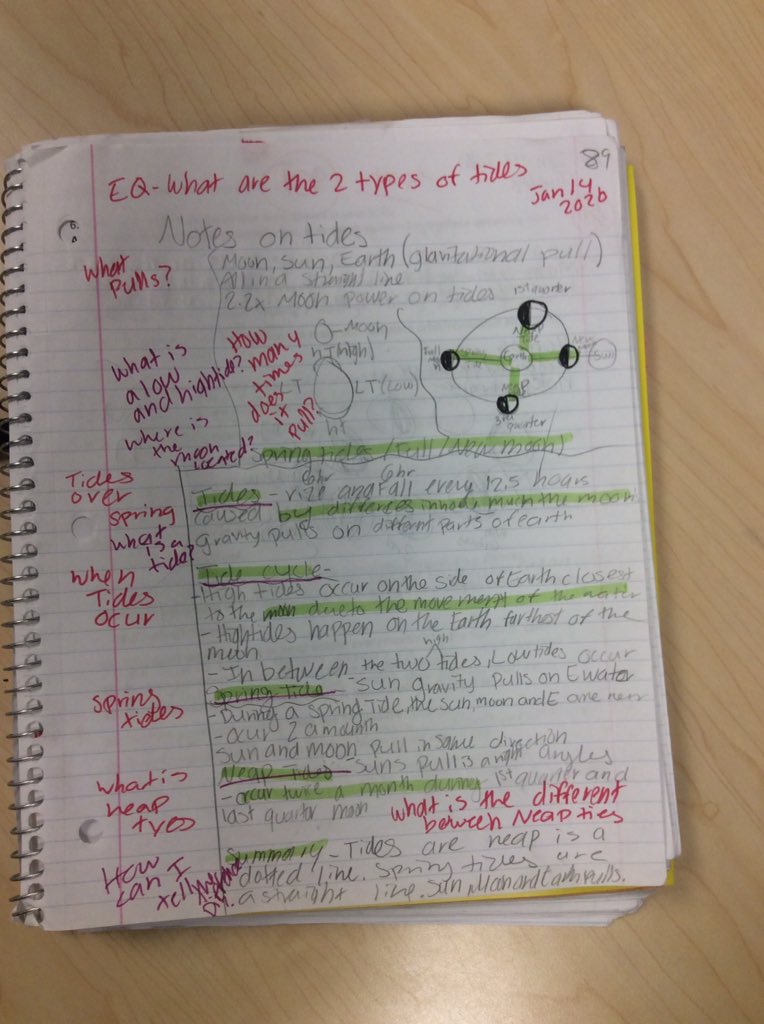 89
EQ-What are the 2 types of tides
Jan 14
2020
Notes on tides
What
pulls?
Moon, Sun, Earth (glavitational pull)
All in a straight line
2.2x Moon power on tides
1st quarter
Moon
HT(high)
LT(Low)
T
ht
How
many
times
does
it
pull?
Full
Earth
New
Sun
Neap
3rd
quarter
What is
a low
and hightide?
where is
the
moon
located?
Spring tides (Full/New moon)
6hr 6hr
Tides
over
spring
What
is a
tide?
Tides - rize and fall every 12.5 hours
caused by differences in how much the moon
gravity pulls on different parts of earth
When
Tides
ocur
Tide cycle-
-High tides occur on the side of Earth closest
to the moon due to the movement of the water
-Hightides happen on the Earth farthest of the
moon
high
-In between the two tides, Low tides occur
spring
tides
Spring Tide - Sun gravity pulls on E water
-During a spring Tide, the sun, moon and E are
-ocur 2 a mounth
Sun and moon pull in same direction
what is
neap
tyes
Neap Tides - Suns pull is a right angles
-occur twice a month during 1st quarter and
last quarter moon
what is the different
beween Neap ties
How
can I
tell
Summary - Tides are neap is a
dotted line. Spring tides are
a straight line. Sun, Moon and Earth Pulls.